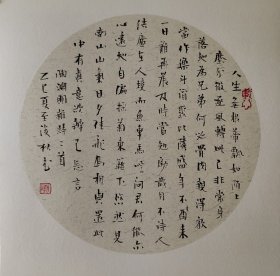 人生無根蒂飄如陌上
塵分散逐風轉此已非常身
落地為兄弟何必骨肉親得歡
當作樂斗酒聚比鄰盛年不重來
一日難再晨及時當勉勵歲月不待人
結廬在人境而無車馬喧問君何能尔
心遠地自偏採菊東籬下悠然見
南山山氣日夕佳飛鳥相與還此
中有真意欲辨已忘言
陶淵明雜詩二首
乙巳夏至後